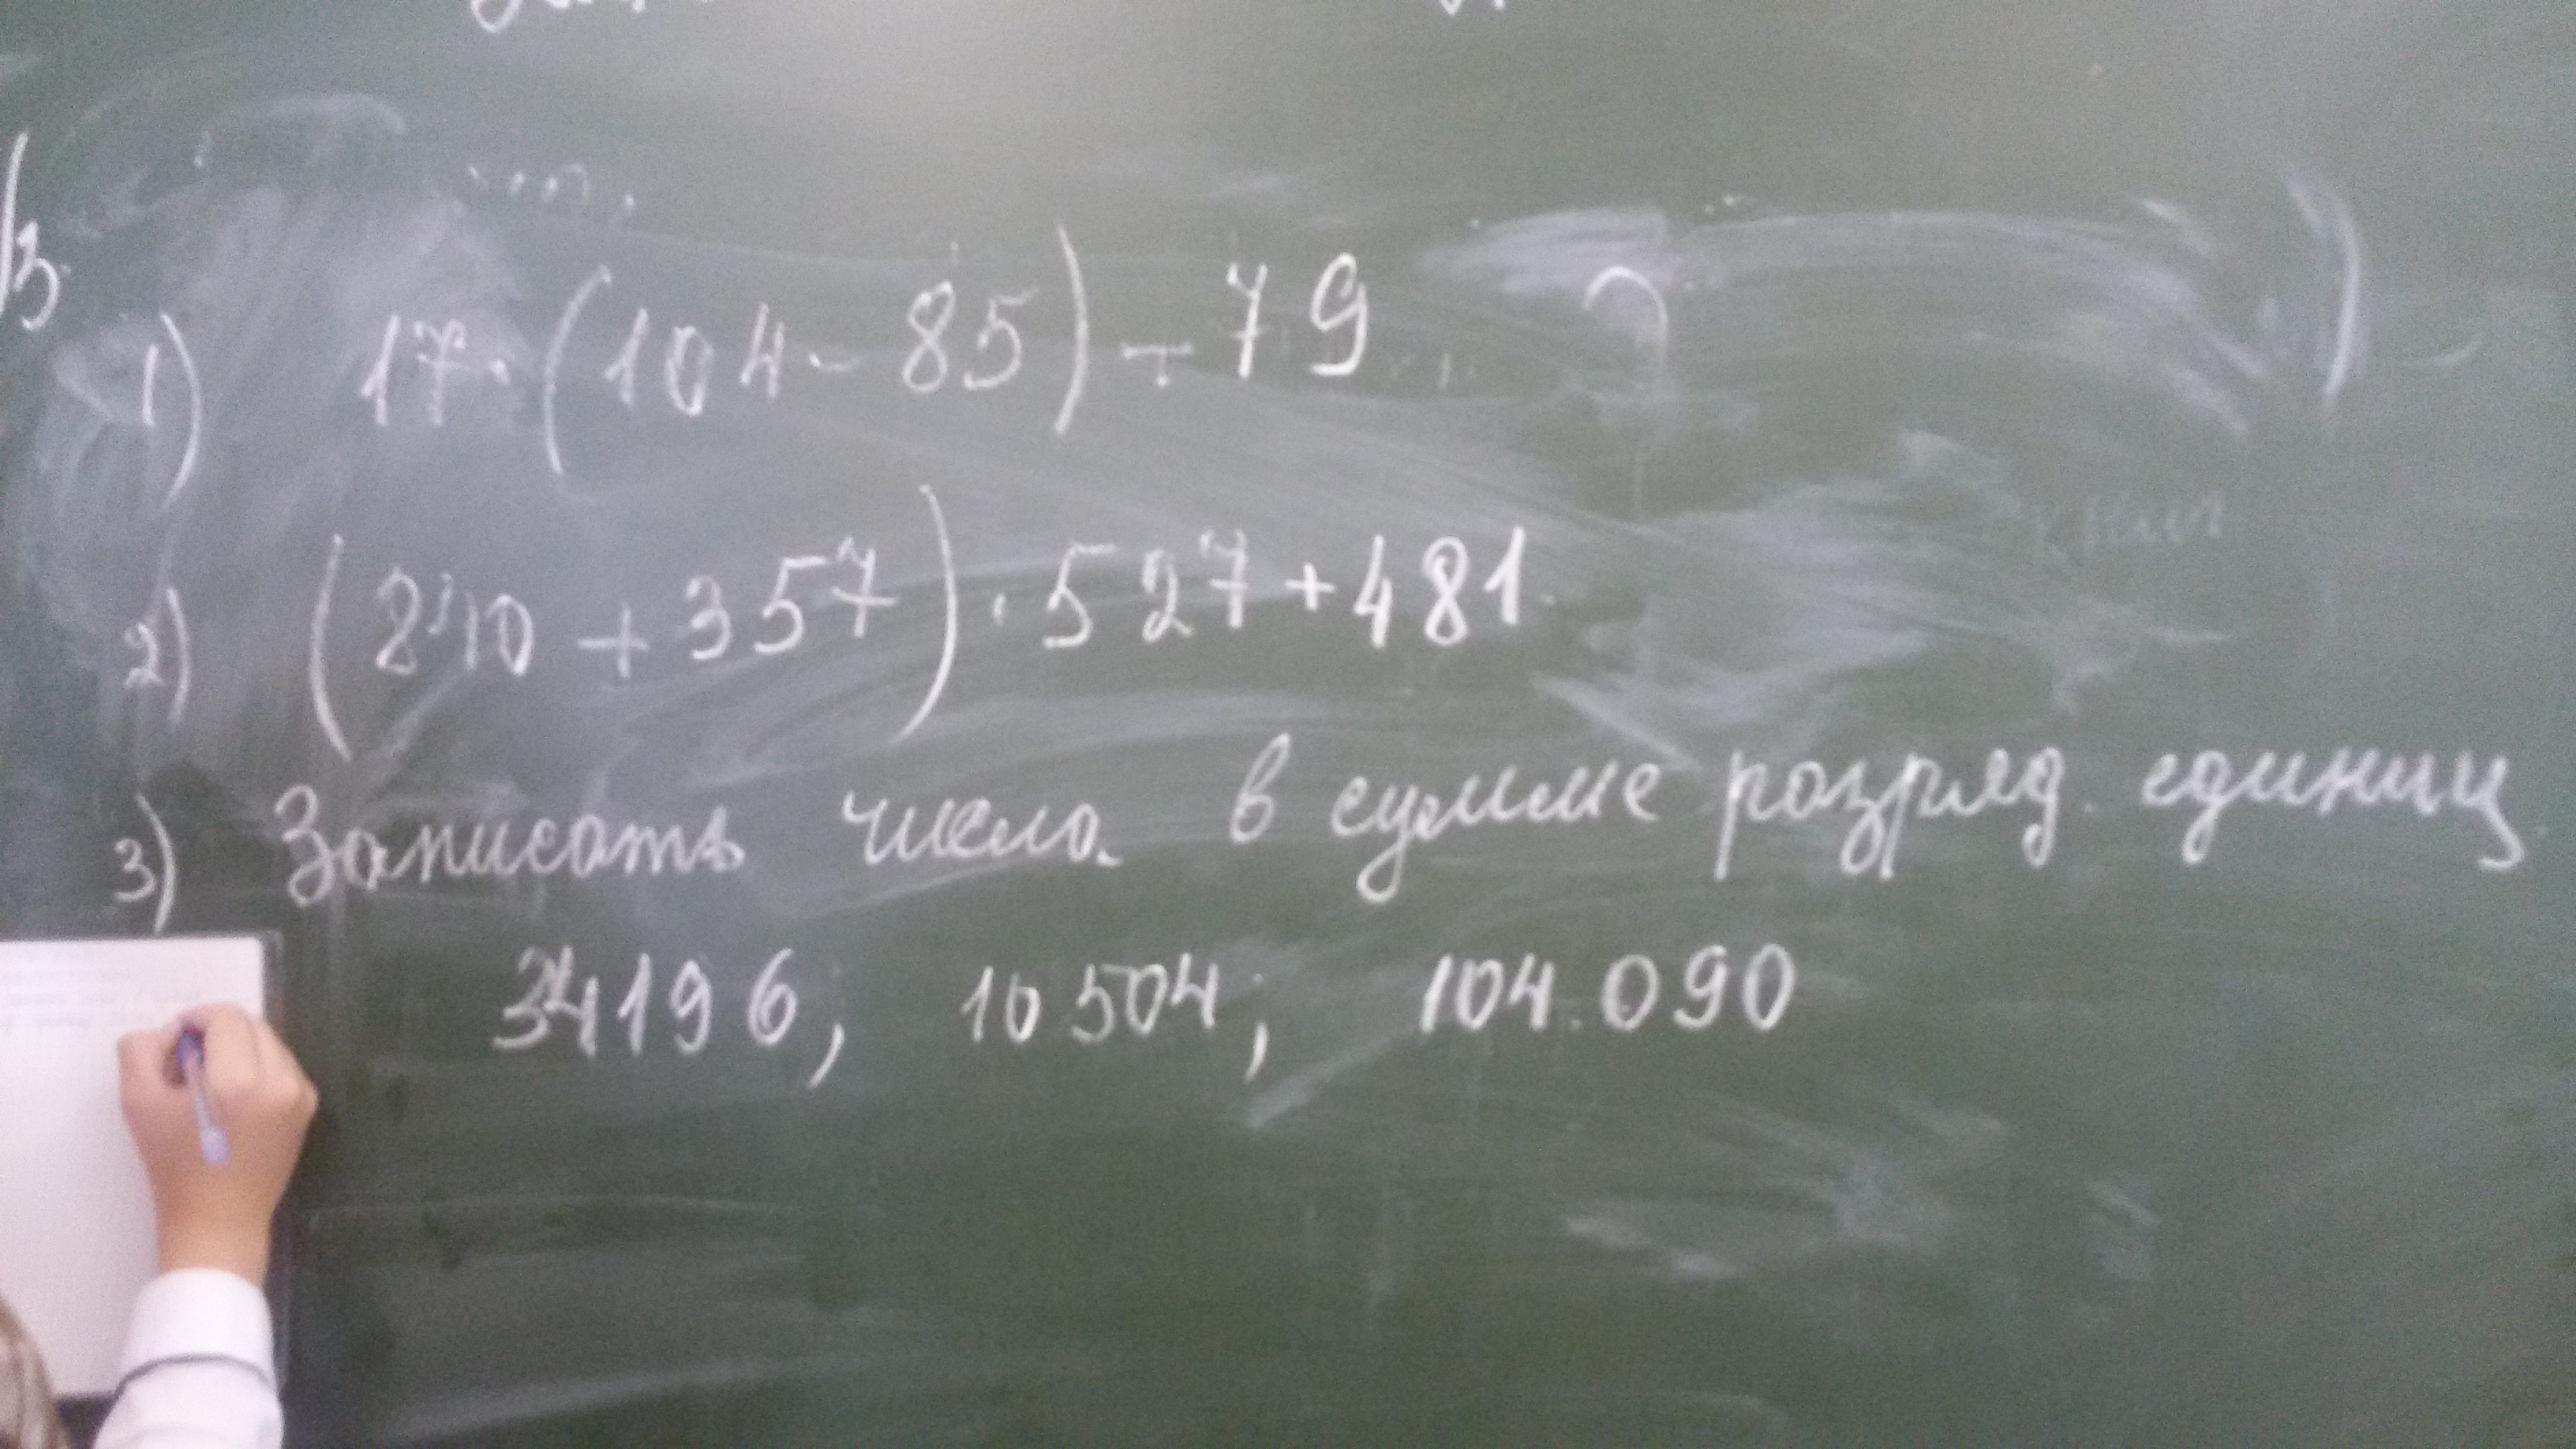 1) 17·(104-85)-79
2) (840+357)·527+481
3) Записать числа в сумме разряд. единиц
34196; 10504; 104.090